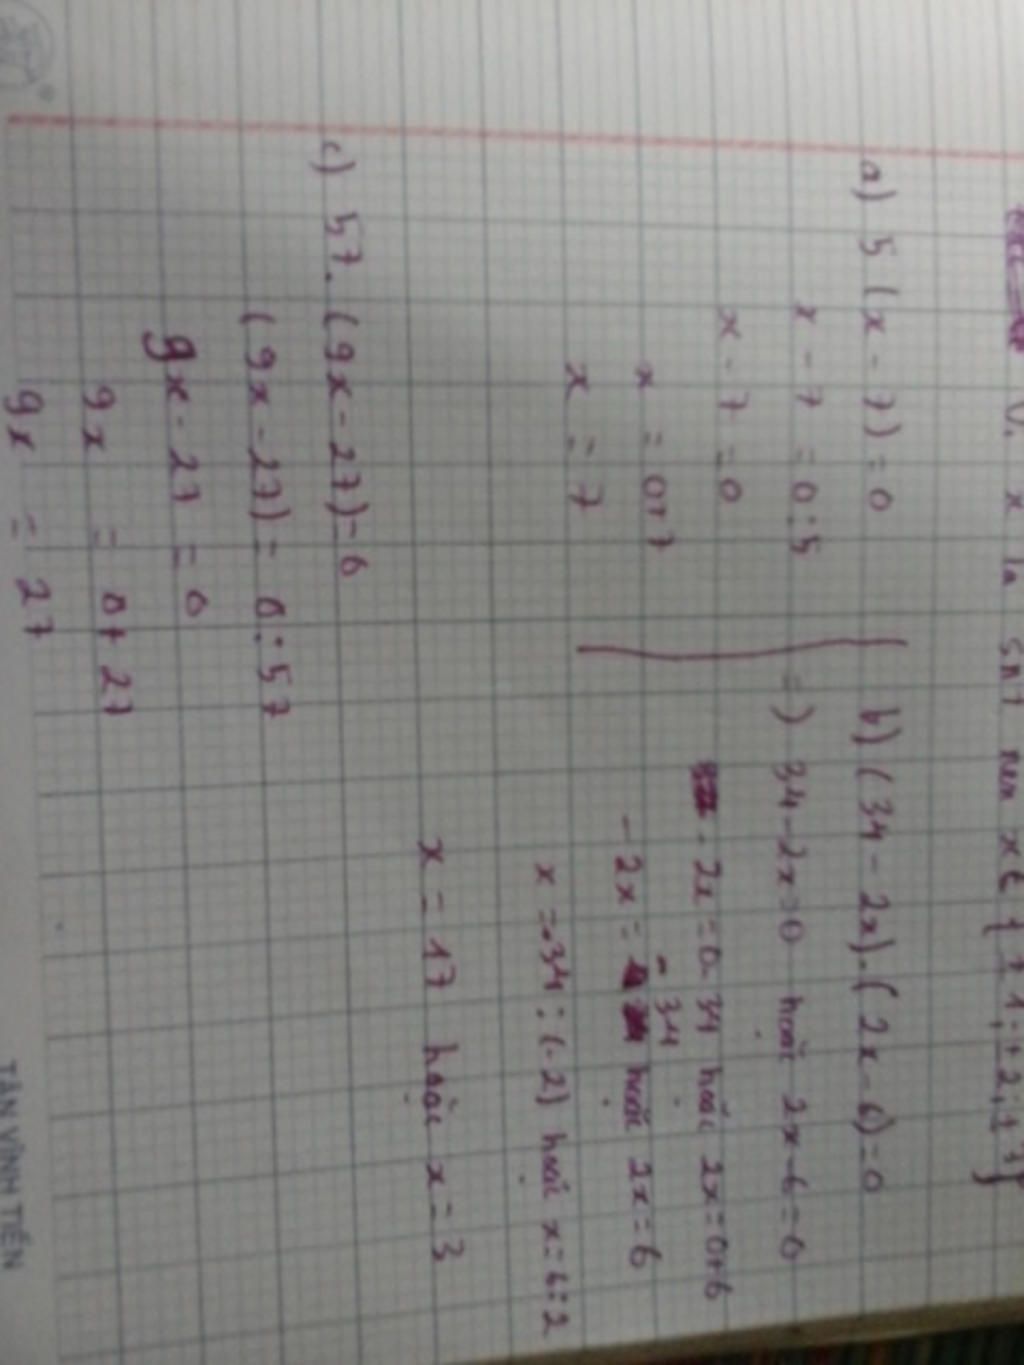 V. x là snt nên x ∈ {±1; ±2; ±7}
a) 5(x - 7) = 0
x - 7 = 0:5
x - 7 = 0
x = 0+7
x = 7
b) (34 - 2x).(2x - 6) = 0
=) 34 - 2x = 0 hoặc 2x - 6 = 0
- 2x = 0 - 34 hoặc 2x = 0+6
- 2x = -34 hoặc 2x = 6
x = -34 : (-2) hoặc x = 6:2
x = 17 hoặc x = 3
c) 57. (9x - 27) = 0
(9x - 27) = 0 : 57
9x - 27 = 0
9x = 0 + 27
9x = 27
TÂN VĨNH TIẾN